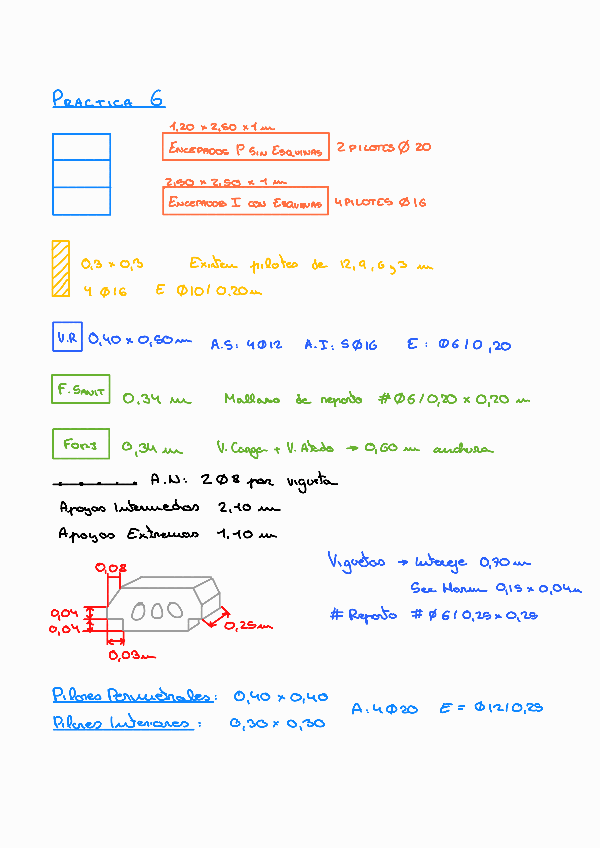 PRACTICA 6
1,20 x 2,50 x 1 m
ENCEPADOS P SIN ESQUINAS 2 PILOTES Ø 20
2,50 x 2,50 x 1 m
ENCEPADOS I CON ESQUINAS 4 PILOTES Ø16
0,3 x 0,3 Existen pilotes de 12, 9, 6 y 3 m
4 Ø16 E Ø10/0.20m
V.R 0,40 x 0,50 m A.S: 4Ø12 A.I: 5Ø16 E: Ø6/0,20
F. SANIT 0,34 m Mallazo de reparto #Ø6/0,20 x 0,20 m
FORJ 0,34 m V. Carga + V. Atado → 0,60 m anchura
A.N: 2Ø8 por vigueta
Apoyos Intermedos 2.10 m
Apoyos Extremos 1.10 m
0,08
Viguetas → Intereje 0,70 m
0,04
0,04
0,25m
0,03m
0,15 x 0,04m
# Reparto # Ø6/0,25 x 0,25
Pilares Perimetrales: 0,40 x 0,40
A: 4Ø20 E = Ø12/0,25
Pilares Interiores: 0,30 x 0,30